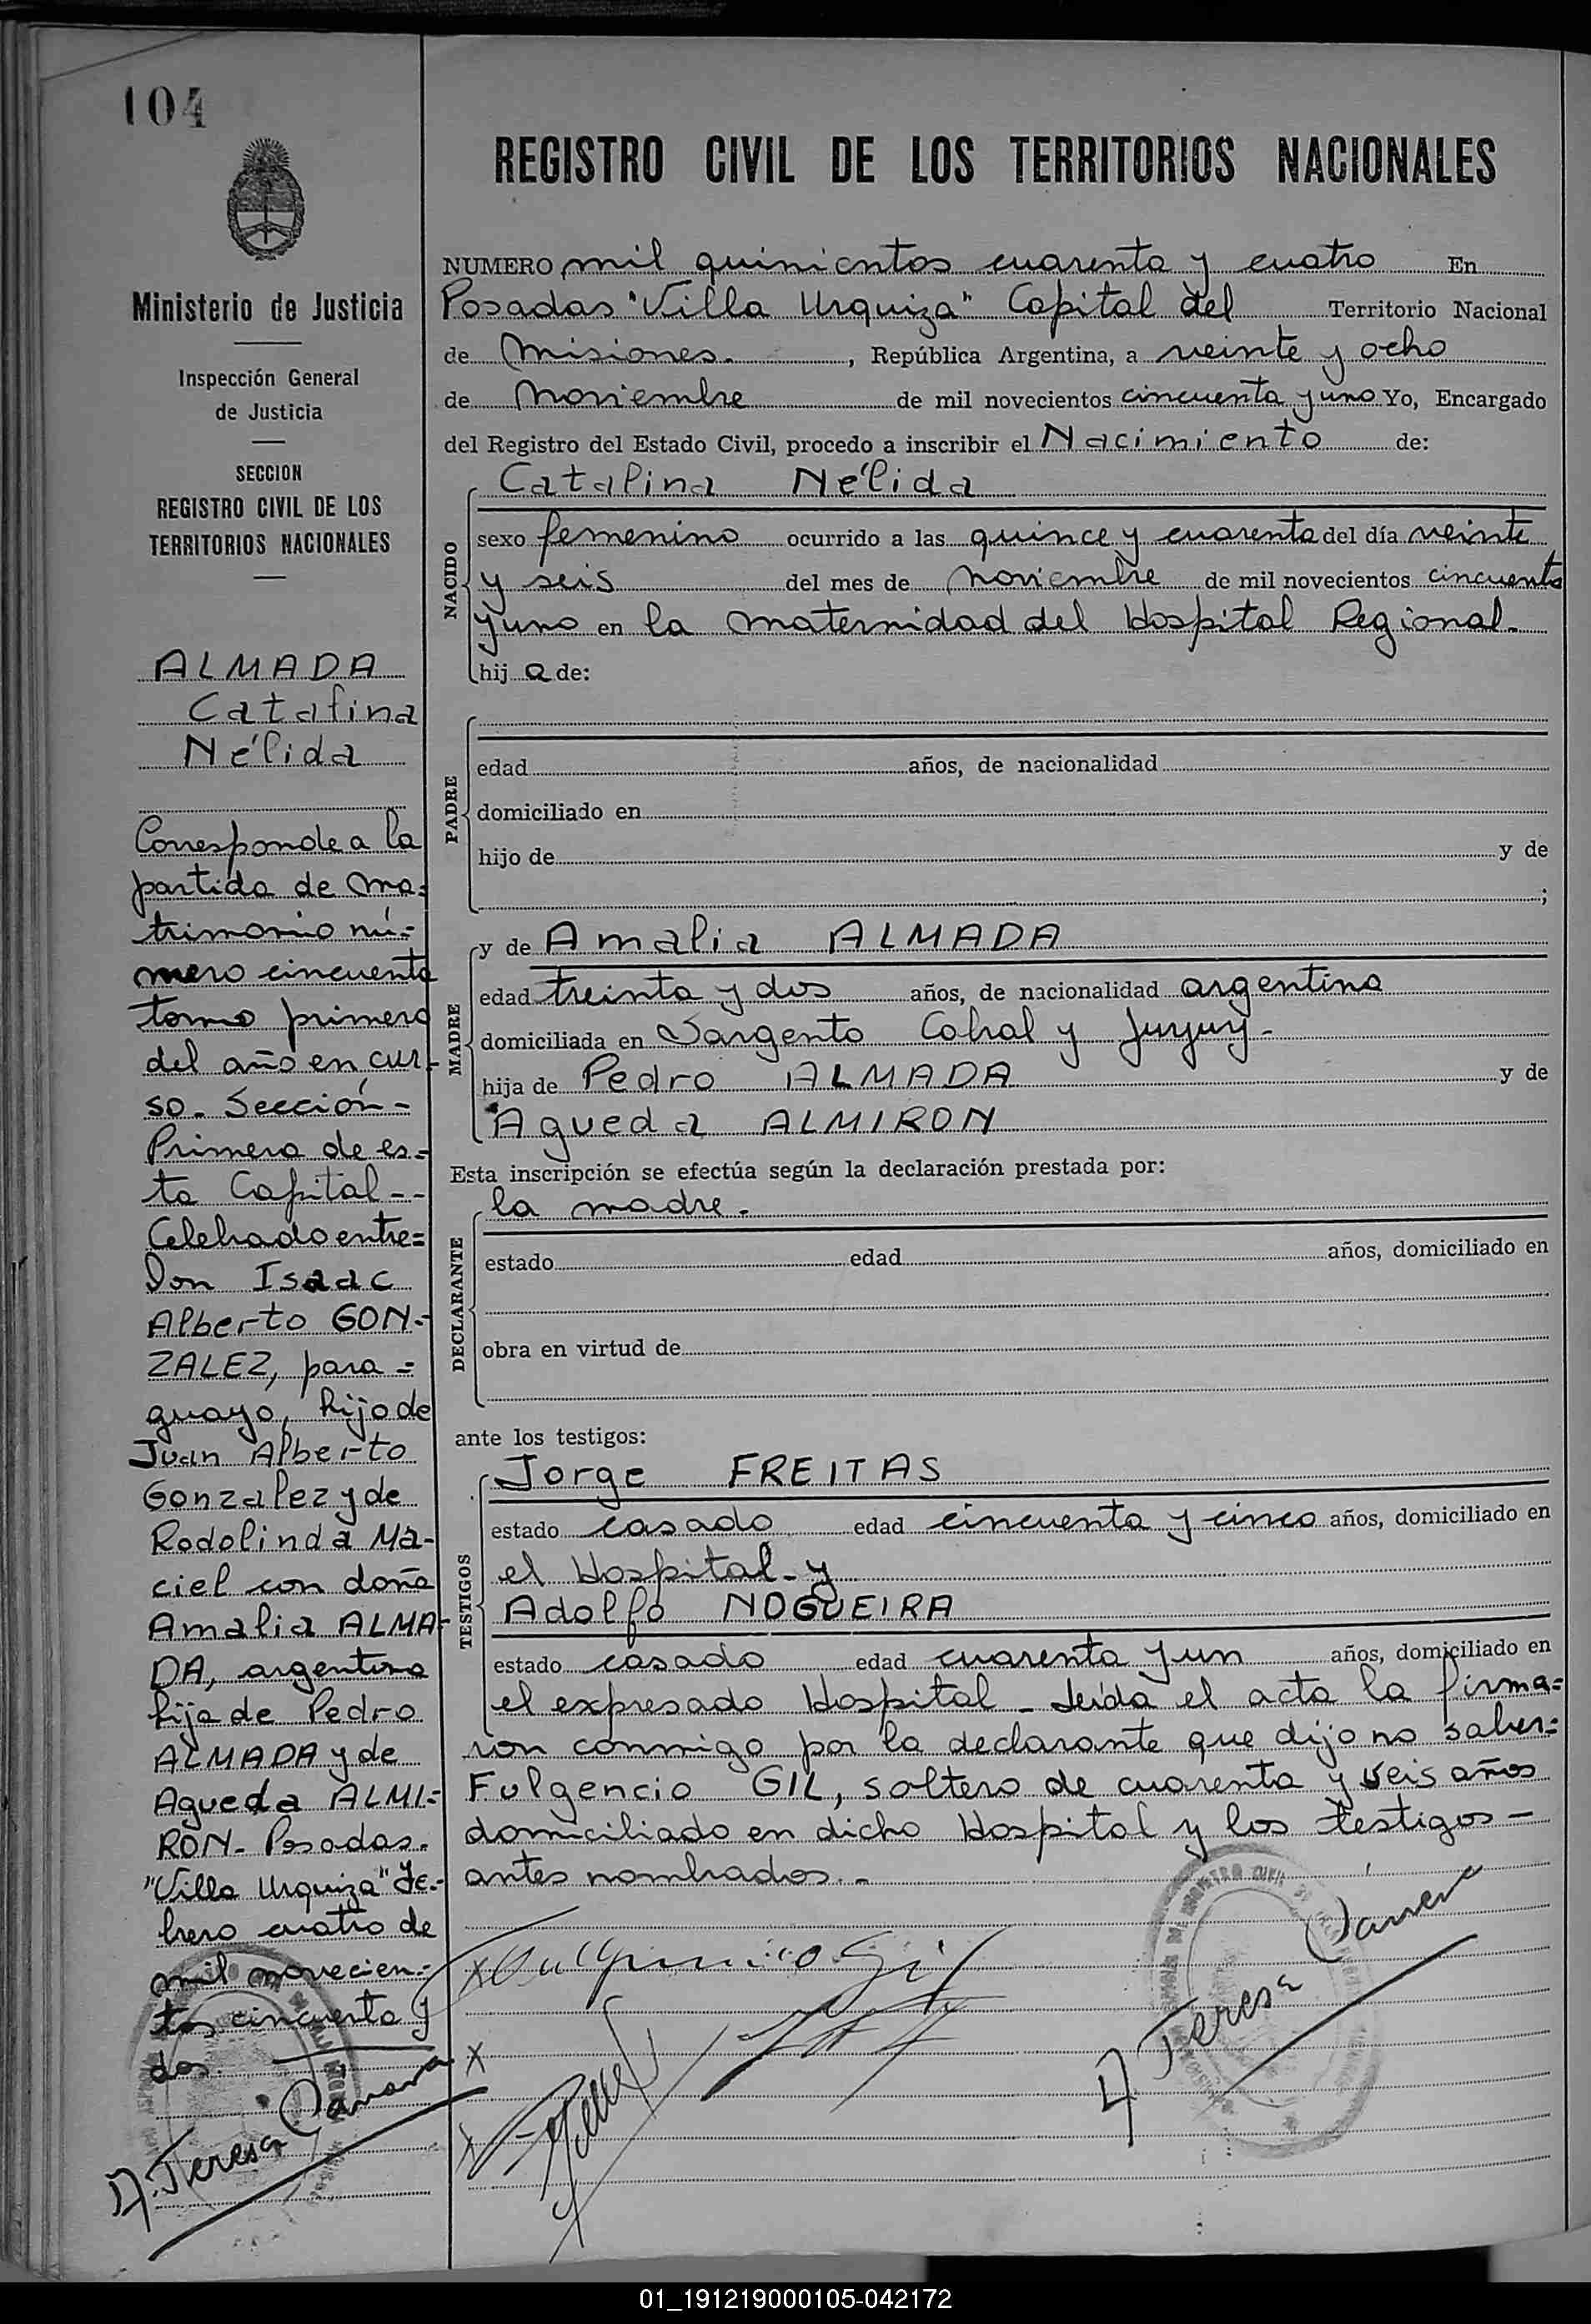 104
Ministerio de Justicia
Inspección General
de Justicia
SECCION
REGISTRO CIVIL DE LOS
TERRITORIOS NACIONALES
ALMADA
Catalina
Nélida
Corresponde a la
partida de ma=
trimonio nú=
mero cincuenta
tomo primero
del año en cur-
so. Sección-
Primera de es=
ta Capital--
Celebrado entre=
Don Isaac
Alberto GON-
ZALEZ, para=
guayo, hijo de
Juan Alberto
Gonzalez y de
Rodolinda Ma-
ciel con doña
Amalia ALMA-
DA, argentina
hija de Pedro
ALMADA y de
Agueda ALMI=
RON- Posadas.
"Villa Urquiza" Fe-
brero cuatro de
mil novecien-
tos cincuenta y
dos.
REGISTRO CIVIL DE LOS TERRITORIOS NACIONALES
NUMERO mil quinientos cuarenta y cuatro En
Posadas "Villa Urquiza" Capital del Territorio Nacional
de Misiones. , República Argentina, a veinte y ocho
de Noviembre de mil novecientos cincuenta y uno Yo, Encargado
del Registro del Estado Civil, procedo a inscribir el Nacimiento de:
NACIDO
Catalina Nélida
sexo femenino ocurrido a las quince y cuarenta del día veinte
y seis del mes de noviembre de mil novecientos cincuenta
y uno en la maternidad del Hospital Regional.
hij a de:
PADRE
edad años, de nacionalidad
domiciliado en
hijo de y de
;
MADRE
y de Amalia ALMADA
edad treinta y dos años, de nacionalidad argentina
domiciliada en Sargento Cabral y Jujuy-
hija de Pedro ALMADA y de
Agueda ALMIRON
Esta inscripción se efectúa según la declaración prestada por:
DECLARANTE
la madre.
estado edad años, domiciliado en
obra en virtud de
ante los testigos:
TESTIGOS
Jorge FREITAS
estado casado edad cincuenta y cinco años, domiciliado en
el Hospital-y
Adolfo NOGUEIRA
estado casado edad cuarenta y un años, domiciliado en
el expresado Hospital - Leída el acta la firma=
ron conmigo por la declarante que dijo no saber=
Fulgencio GIL, soltero de cuarenta y seis años
domiciliado en dicho Hospital y los testigos-
antes nombrados.-
Fulgencio Gil
01_191219000105-042172